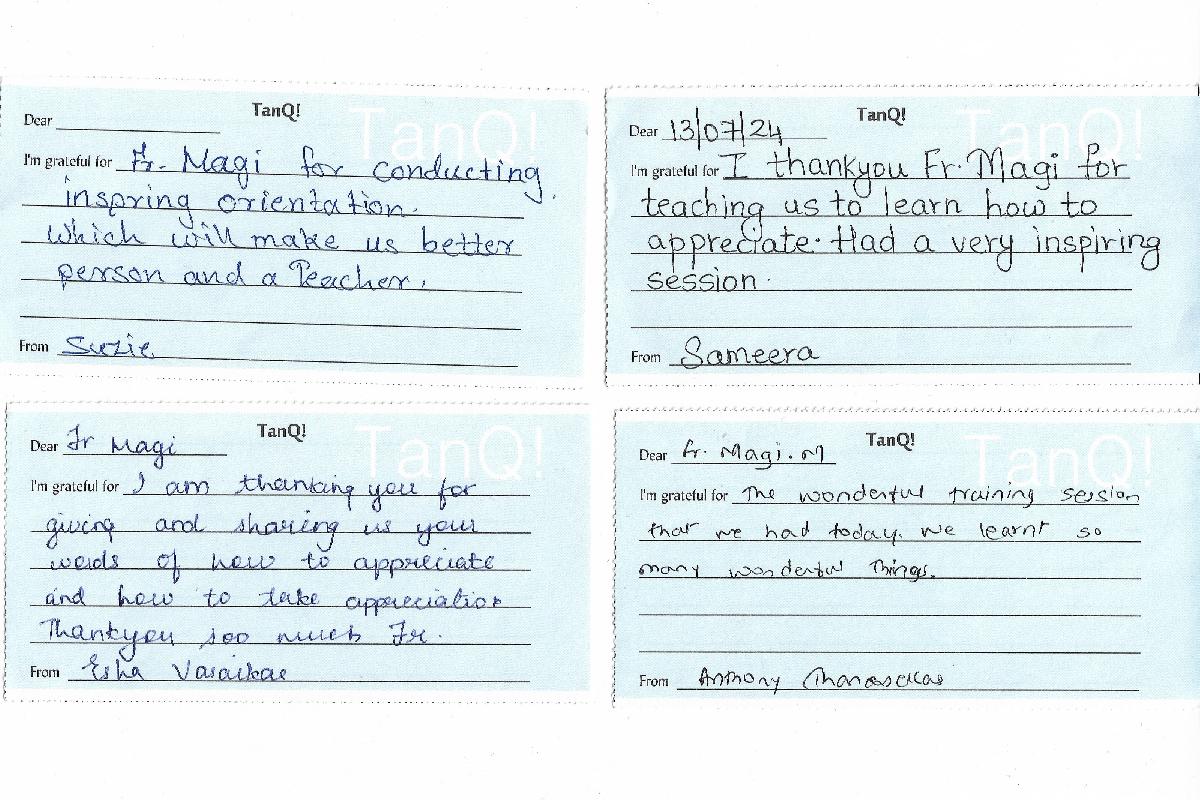 TanQ!
Dear
I'm grateful for Fr. Magi for conducting
inspring orientation.
Which will make us better
person and a Teacher.
From Suzie
TanQ!
Dear 13/07/24
I'm grateful for I thankyou Fr. Magi for
teaching us to learn how to
appreciate. Had a very inspiring
session.
From Sameera
TanQ!
Dear Fr Magi
I'm grateful for I am thanking you for
giving and sharing us your
words of how to appreciate
and how to take appreciation
Thankyou soo much Fr.
From Esha Vasaikar
TanQ!
Dear Fr. Magi. M
I'm grateful for The wonderful training session
that we had today. We learnt so
many wonderful Things.
From Anthony